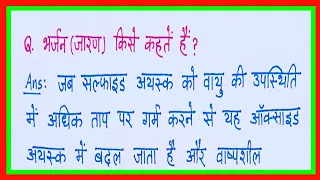 Q. भर्जन (जारण) किसे कहतें हैं?
Ans: जब सल्फाइड अयस्क को वायु की उपस्थिति
में अधिक ताप पर गर्म करने से यह ऑक्साइड
अयस्क में बदल जाता है और वाष्पशील